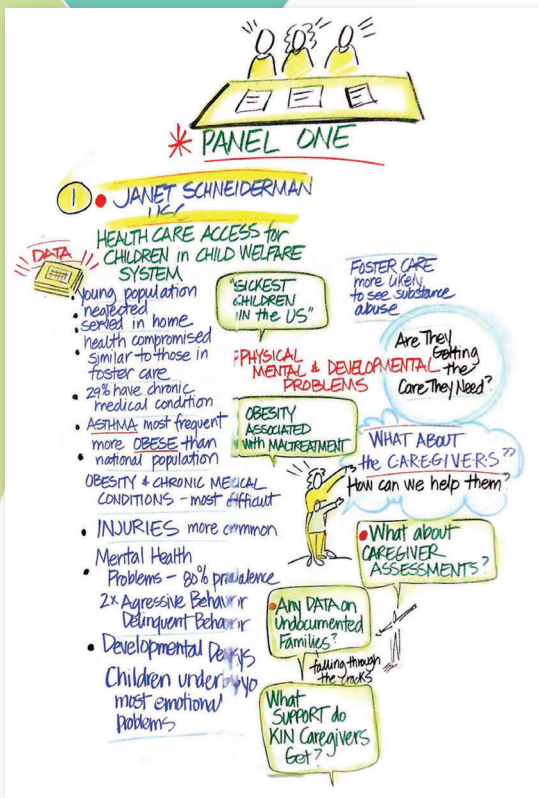 PANEL ONE
1 • JANET SCHNEIDERMAN
USC
HEALTH CARE ACCESS for
CHILDREN in CHILD WELFARE
SYSTEM
DATA
young population
• neglected
• served in home
health compromised
• similar to those in
foster care
• 29% have chronic
medical condition
• ASTHMA most frequent
• more OBESE than
national population
OBESITY & CHRONIC MEDICAL
CONDITIONS - most difficult
• INJURIES more common
Mental Health
• Problems - 80% prevalence
2x Agressive Behavior
Delinquent Behavior
• Developmental Delays
Children under yo
most emotional
problems
"SICKEST
CHILDREN
IN the US"
FOSTER CARE
more likely
to see substance
abuse
PHYSICAL
MENTAL & DEVELOPMENTAL
PROBLEMS
Are They
Getting
the
Care They Need?
OBESITY
ASSOCIATED
with MALTREATMENT
WHAT ABOUT
the CAREGIVERS??
How can we help them?
• What about
CAREGIVER
ASSESSMENTS?
• Any DATA on
Undocumented
Families?
falling through
the cracks
What
SUPPORT do
KIN Caregivers
Get?